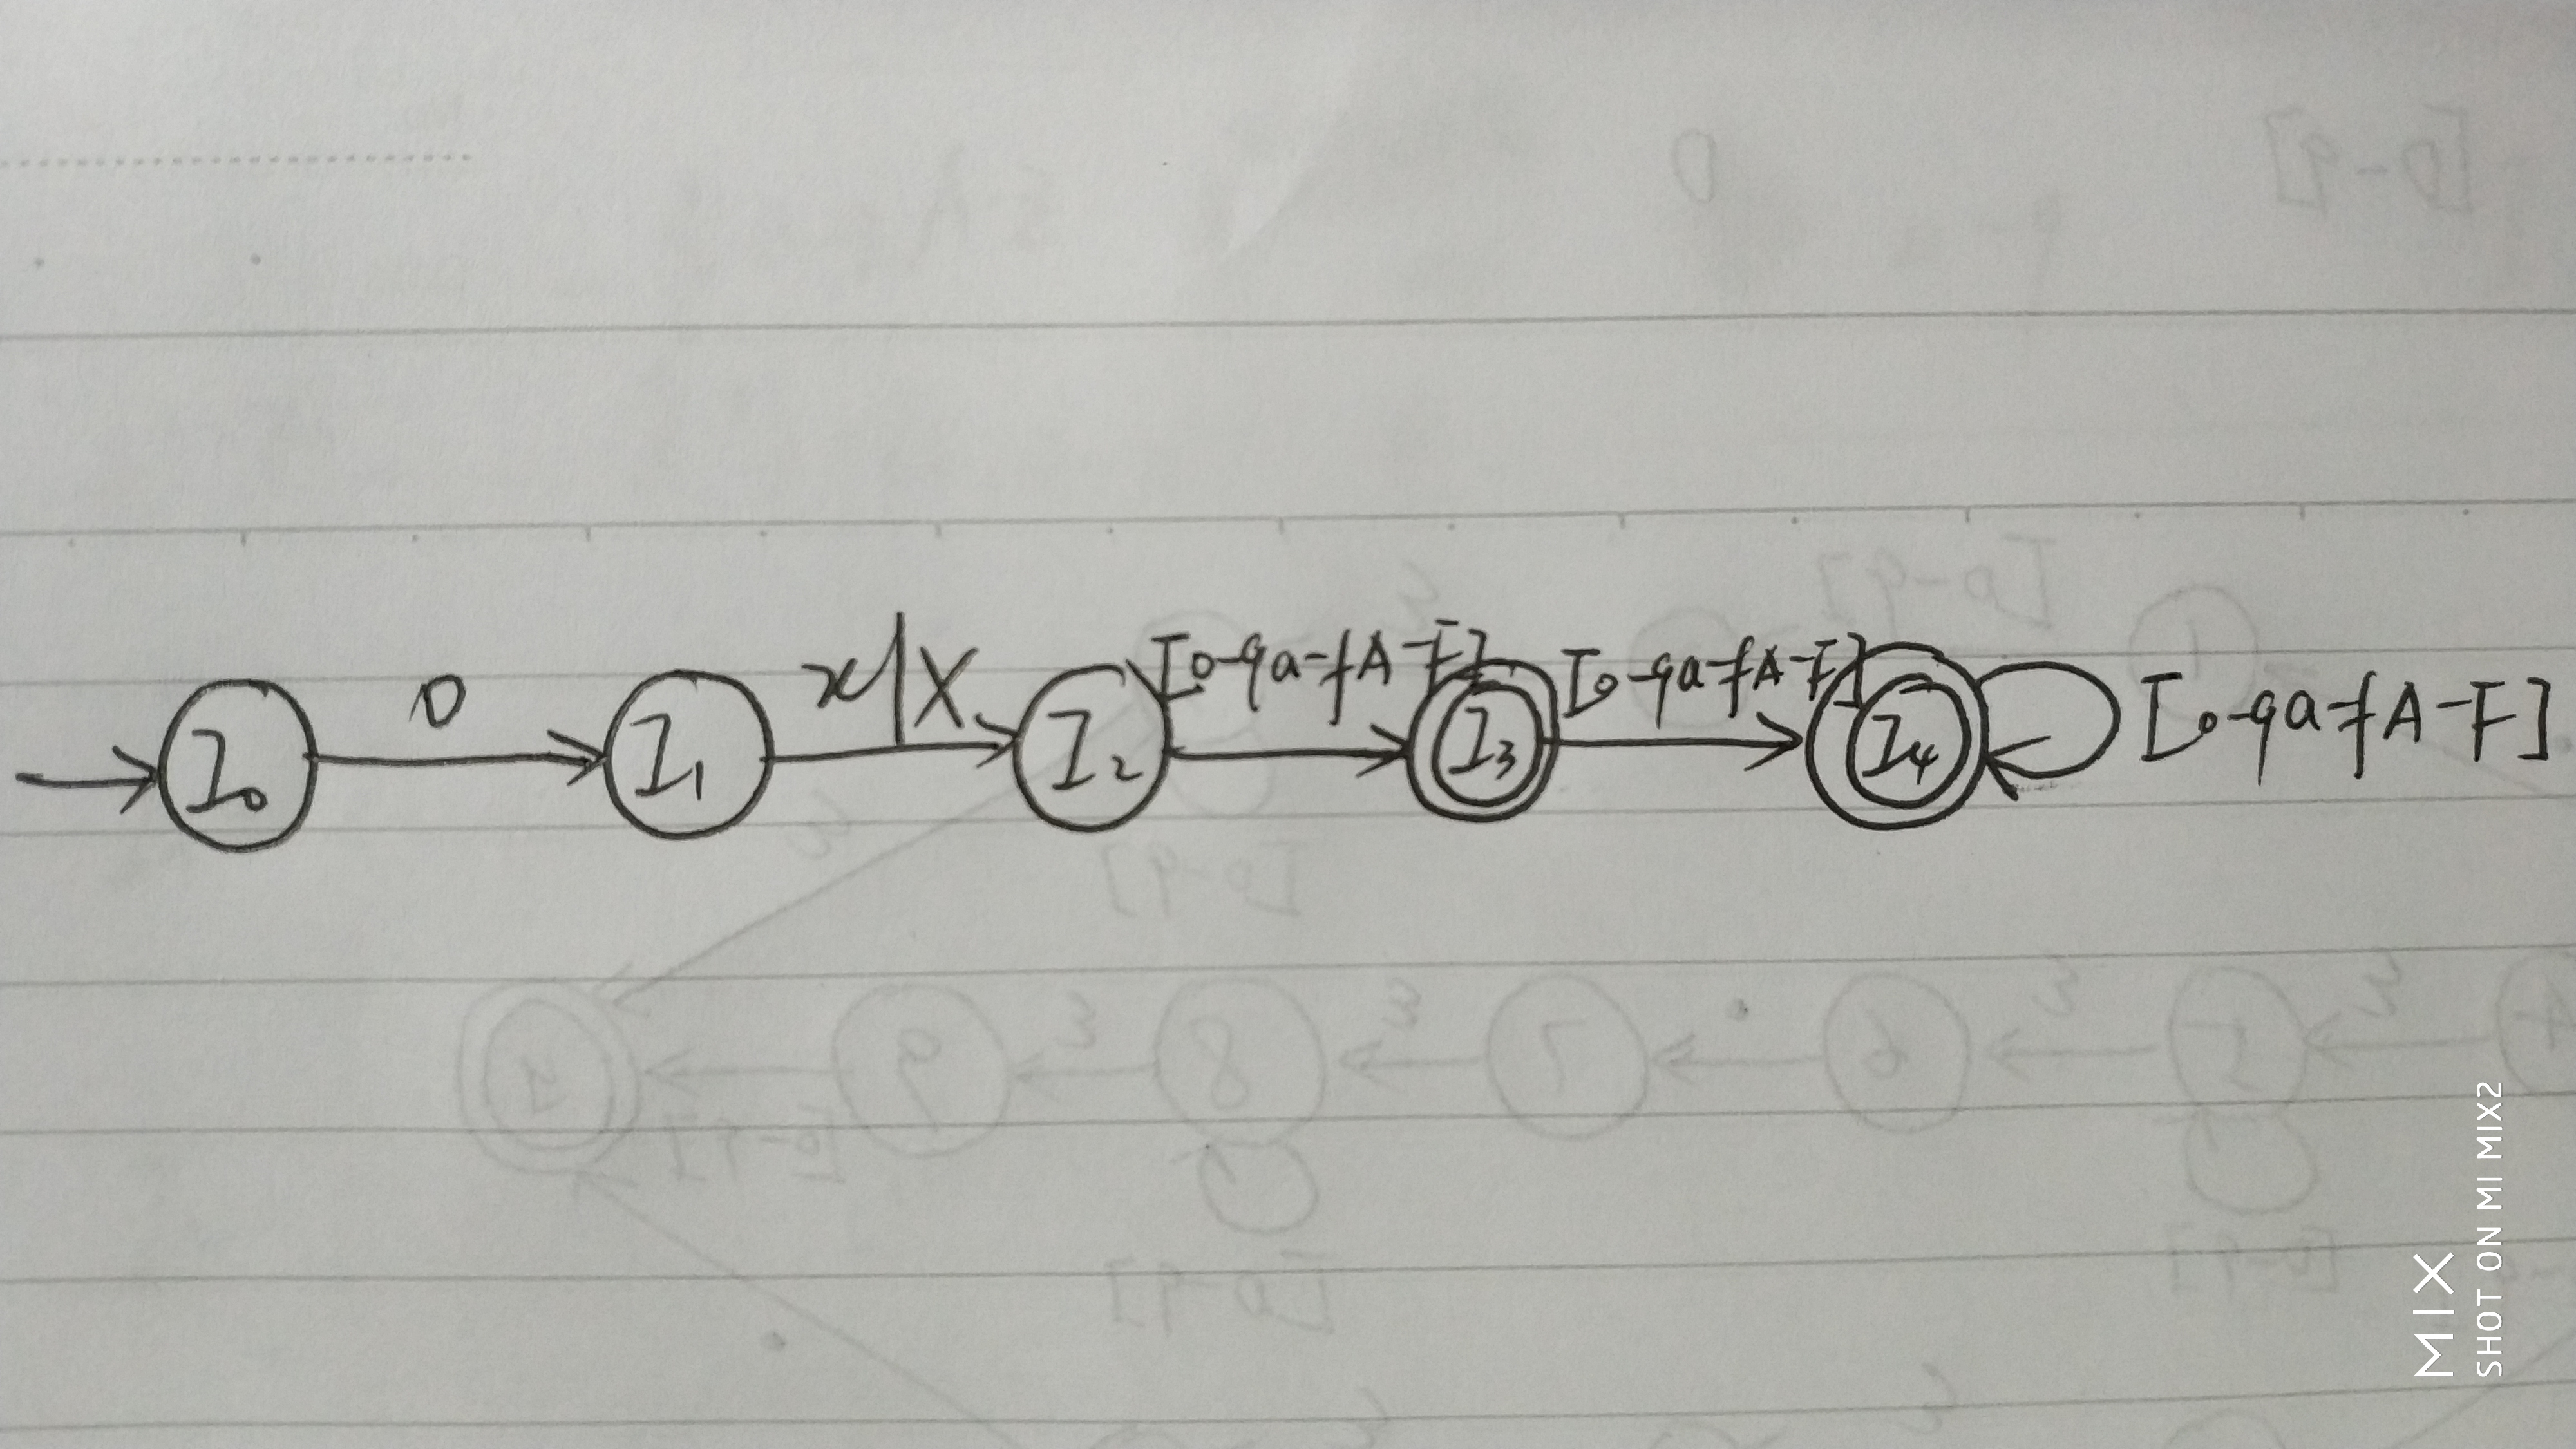 I0
0
I1
x|X
I2
[0-9a-fA-F]
I3
[0-9a-fA-F]
I4
[0-9a-fA-F]
MIX
SHOT ON MI MIX2